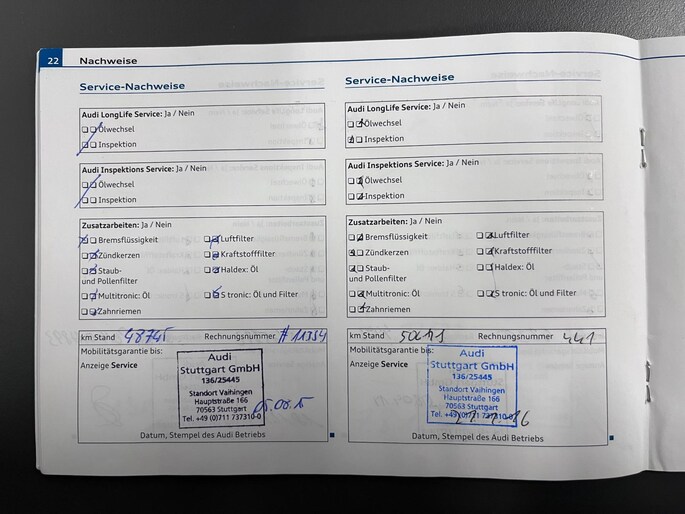 22 Nachweise
Service-Nachweise
Audi LongLife Service: Ja / Nein
Ölwechsel
Inspektion
Audi Inspektions Service: Ja / Nein
Ölwechsel
Inspektion
Zusatzarbeiten: Ja / Nein
Bremsflüssigkeit Luftfilter
Zündkerzen Kraftstofffilter
Staub- Haldex: Öl
und Pollenfilter
Multitronic: Öl S tronic: Öl und Filter
Zahnriemen
km Stand 48745 Rechnungsnummer # 11354
Mobilitätsgarantie bis:
Anzeige Service
Audi
Stuttgart GmbH
136/25445
Standort Vaihingen
Hauptstraße 166
70563 Stuttgart
Tel. +49 (0)711 737310-0
05.08.15
Datum, Stempel des Audi Betriebs
Service-Nachweise
Audi LongLife Service: Ja / Nein
Ölwechsel
Inspektion
Audi Inspektions Service: Ja / Nein
Ölwechsel
Inspektion
Zusatzarbeiten: Ja / Nein
Bremsflüssigkeit Luftfilter
Zündkerzen Kraftstofffilter
Staub- Haldex: Öl
und Pollenfilter
Multitronic: Öl S tronic: Öl und Filter
Zahnriemen
km Stand Rechnungsnummer 441
Mobilitätsgarantie bis:
Anzeige Service
Audi
Stuttgart GmbH
136/25445
Standort Vaihingen
Hauptstraße 166
70563 Stuttgart
Tel. +49 (0)711 737310-0
Datum, Stempel des Audi Betriebs